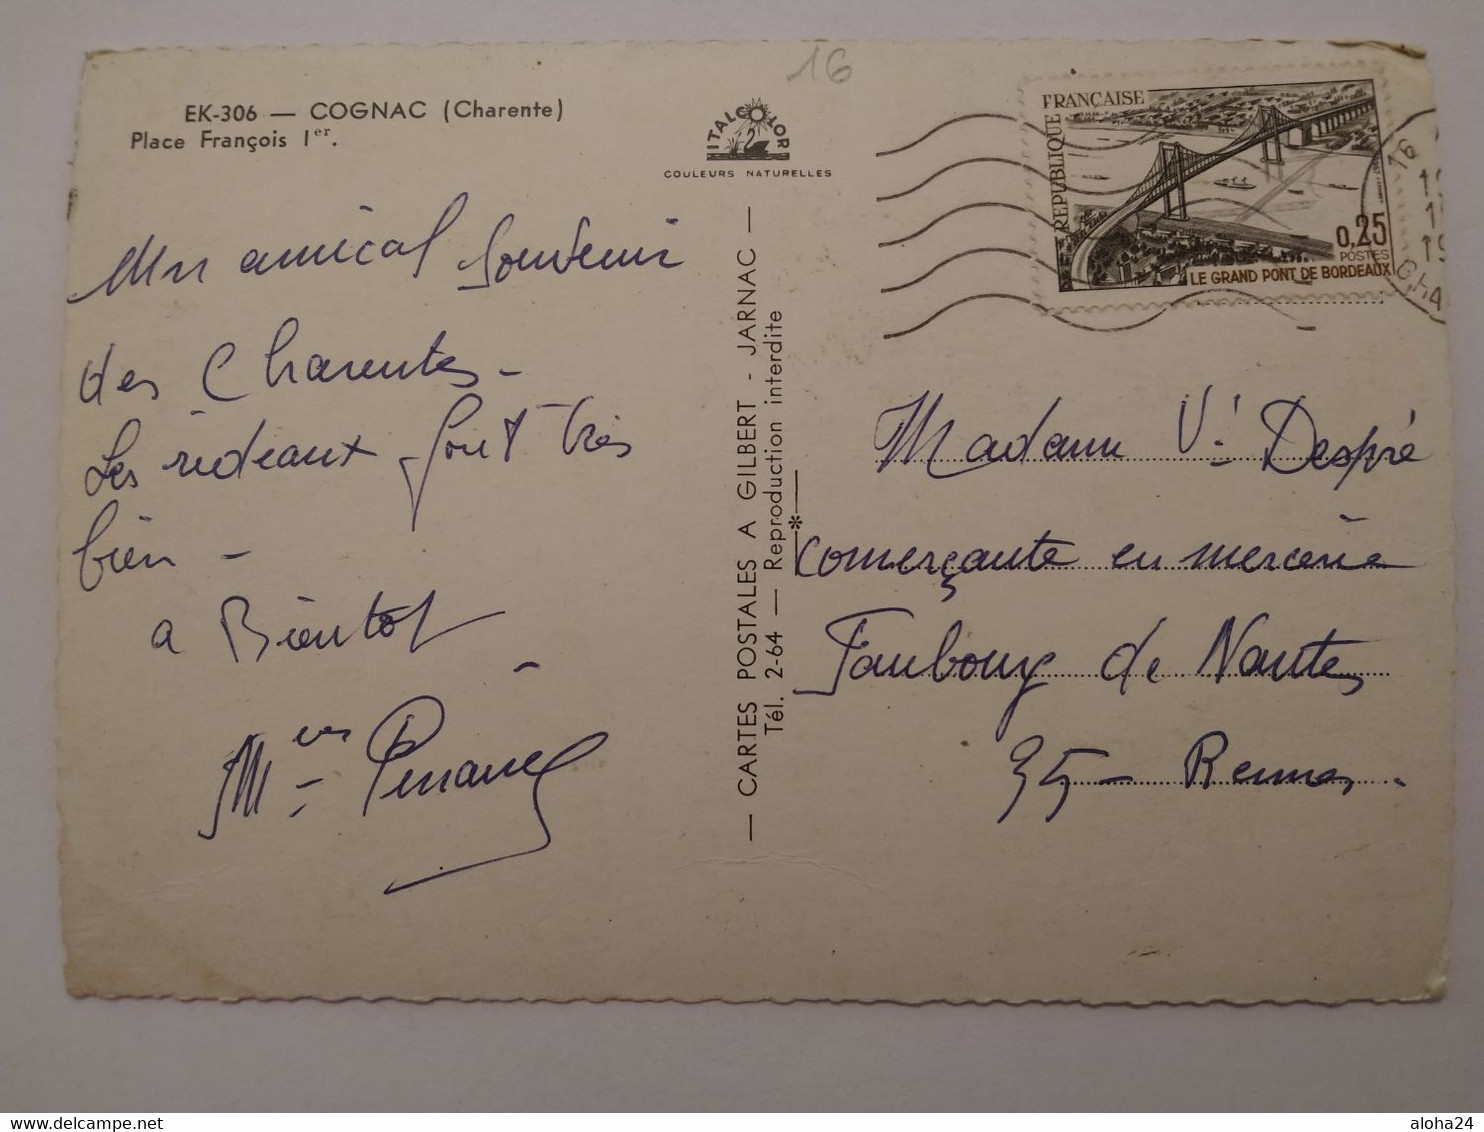 16
EK-306 — COGNAC (Charente)
Place François Ier.
ITALCOLOR
COULEURS NATURELLES
Un amical souvenir
des Charentes -
Les rideaux sont très
bien -
a Bientot
— CARTES POSTALES A GILBERT - JARNAC —
Tél. 2-64 — Reproduction interdite
REPUBLIQUE FRANÇAISE
0,25
POSTES
LE GRAND PONT DE BORDEAUX
16
CHA
Madame Vᵉ Despré
comerçante en mercerie
Faubourg de Nantes
35 - Rennes.
delcampe.net
aloha24